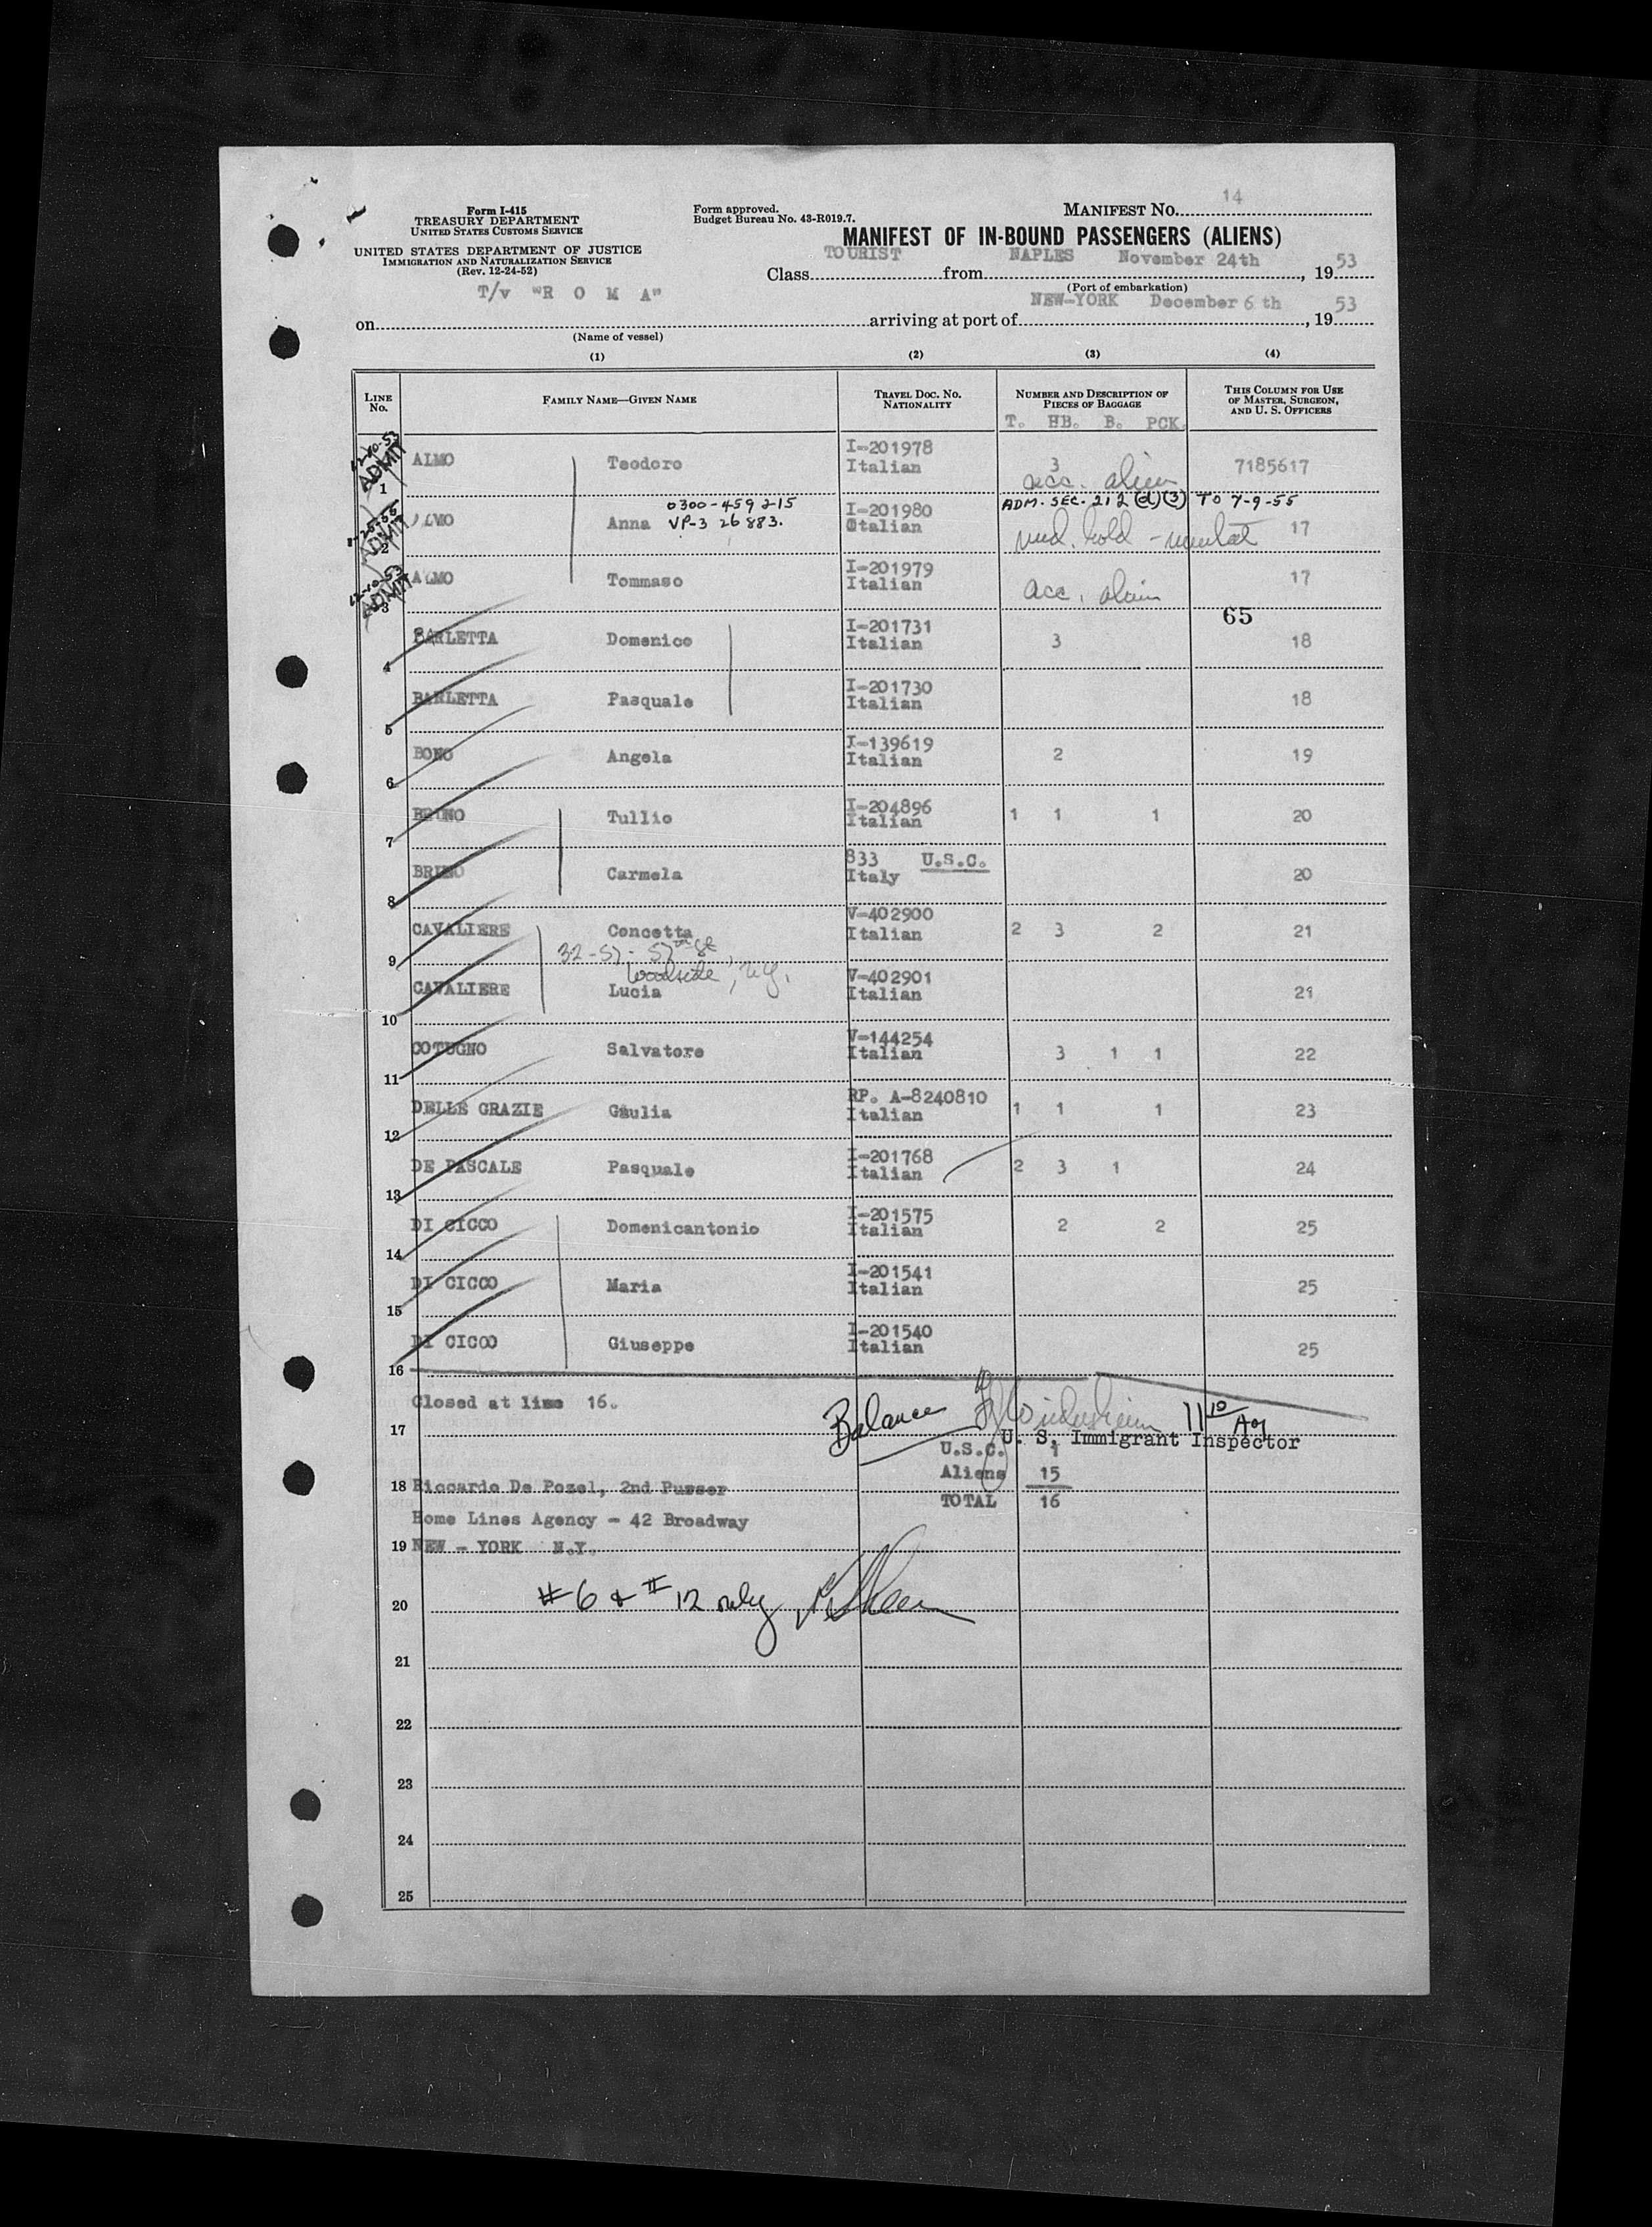 Form I-415
TREASURY DEPARTMENT
UNITED STATES CUSTOMS SERVICE
UNITED STATES DEPARTMENT OF JUSTICE
IMMIGRATION AND NATURALIZATION SERVICE
(Rev. 12-24-52)
Form approved.
Budget Bureau No. 43-R019.7.
MANIFEST NO. 14
MANIFEST OF IN-BOUND PASSENGERS (ALIENS)
Class TOURIST from NAPLES November 24th, 1953
(Port of embarkation)
on T/v "R O M A" arriving at port of NEW-YORK December 6 th, 1953
(Name of vessel)
(1) (2) (3) (4)
LINE No. FAMILY NAME—GIVEN NAME TRAVEL DOC. NO. NATIONALITY NUMBER AND DESCRIPTION OF PIECES OF BAGGAGE THIS COLUMN FOR USE OF MASTER, SURGEON, AND U. S. OFFICERS
T. HB. B. PCK.
12-10-53 ADMIT
1 ALMO Teodoro I-201978 Italian 3 7185617
acc. alien
0300-459215 ADM. SEC. 212 (d)(3) TO 7-9-55
ADMIT
2 ALMO Anna VP-3 26883. I-201980 @talian med. hold - 17
12-10-53 ADMIT
3 ALMO Tommaso I-201979 Italian acc. alien 17
65
4 BARLETTA Domenico I-201731 Italian 3 18
5 BARLETTA Pasquale I-201730 Italian 18
6 BONO Angela I-139619 Italian 2 19
7 BRUNO Tullio I-204896 Italian 1 1 1 20
8 BRUNO Carmela 833 U.S.C. Italy 20
9 CAVALIERE Concetta V-402900 Italian 2 3 2 21
32-57- 57 St,
Woodside, N.Y.
10 CAVALIERE Lucia V-402901 Italian 21
11 COTUGNO Salvatore V-144254 Italian 3 1 1 22
12 DELLE GRAZIE Giulia RP. A-8240810 Italian 1 1 1 23
13 DE PASCALE Pasquale I-201768 Italian 2 3 1 24
14 DI CICCO Domenicantonio I-201575 Italian 2 2 25
15 DI CICCO Maria I-201541 Italian 25
16 DI CICCO Giuseppe I-201540 Italian 25
Closed at line 16.
17 Balance 11 10
U. S. Immigrant Inspector
U.S.C. 1
Aliens 15
18 Riccardo De Pozel, 2nd Purser TOTAL 16
Home Lines Agency - 42 Broadway
19 NEW - YORK N.Y.
20 #6 & #12 only
21
22
23
24
25